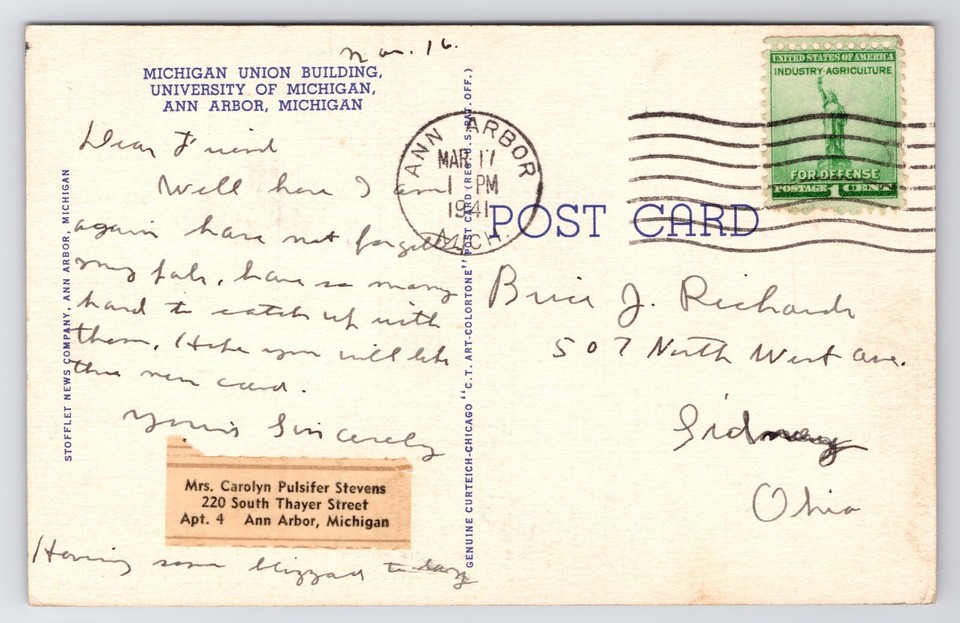 Mar. 16.
MICHIGAN UNION BUILDING,
UNIVERSITY OF MICHIGAN,
ANN ARBOR, MICHIGAN
Dear Friend
Well here I am
again have not forgotten
my pals, have so many
hard to catch up with
them. Hope you will like
this new card.
Yours Sincerely
Mrs. Carolyn Pulsifer Stevens
220 South Thayer Street
Apt. 4 Ann Arbor, Michigan
Having some blizzard to day
STOFFLET NEWS COMPANY, ANN ARBOR, MICHIGAN
GENUINE CURTEICH-CHICAGO "C.T. ART-COLORTONE" POST CARD (REG. U.S. PAT. OFF.)
ANN ARBOR
MAR 17
1 PM
1941
MICH.
UNITED STATES OF AMERICA
INDUSTRY·AGRICULTURE
FOR DEFENSE
POSTAGE 1 CENT
POST CARD
Brice J. Richards
507 North West ave.
Sidney
Ohio